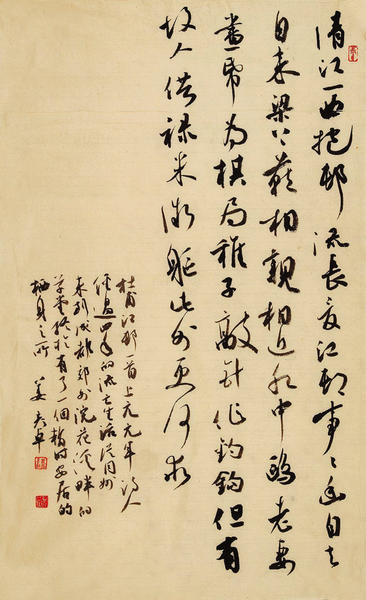 清江一曲抱邨流長夏江邨事〻幽自去
自来梁上燕相親相近水中鷗老妻
畫帋为棋局稚子敲針作钓鈎但有
故人供禄米微躯此外更何求
杜甫江邨一首上元元年诗人
经过四年的流亡生活从同州
来到成都郊外浣花溪畔的
草堂终於有了一個暂时安居的
栖身之所 姜